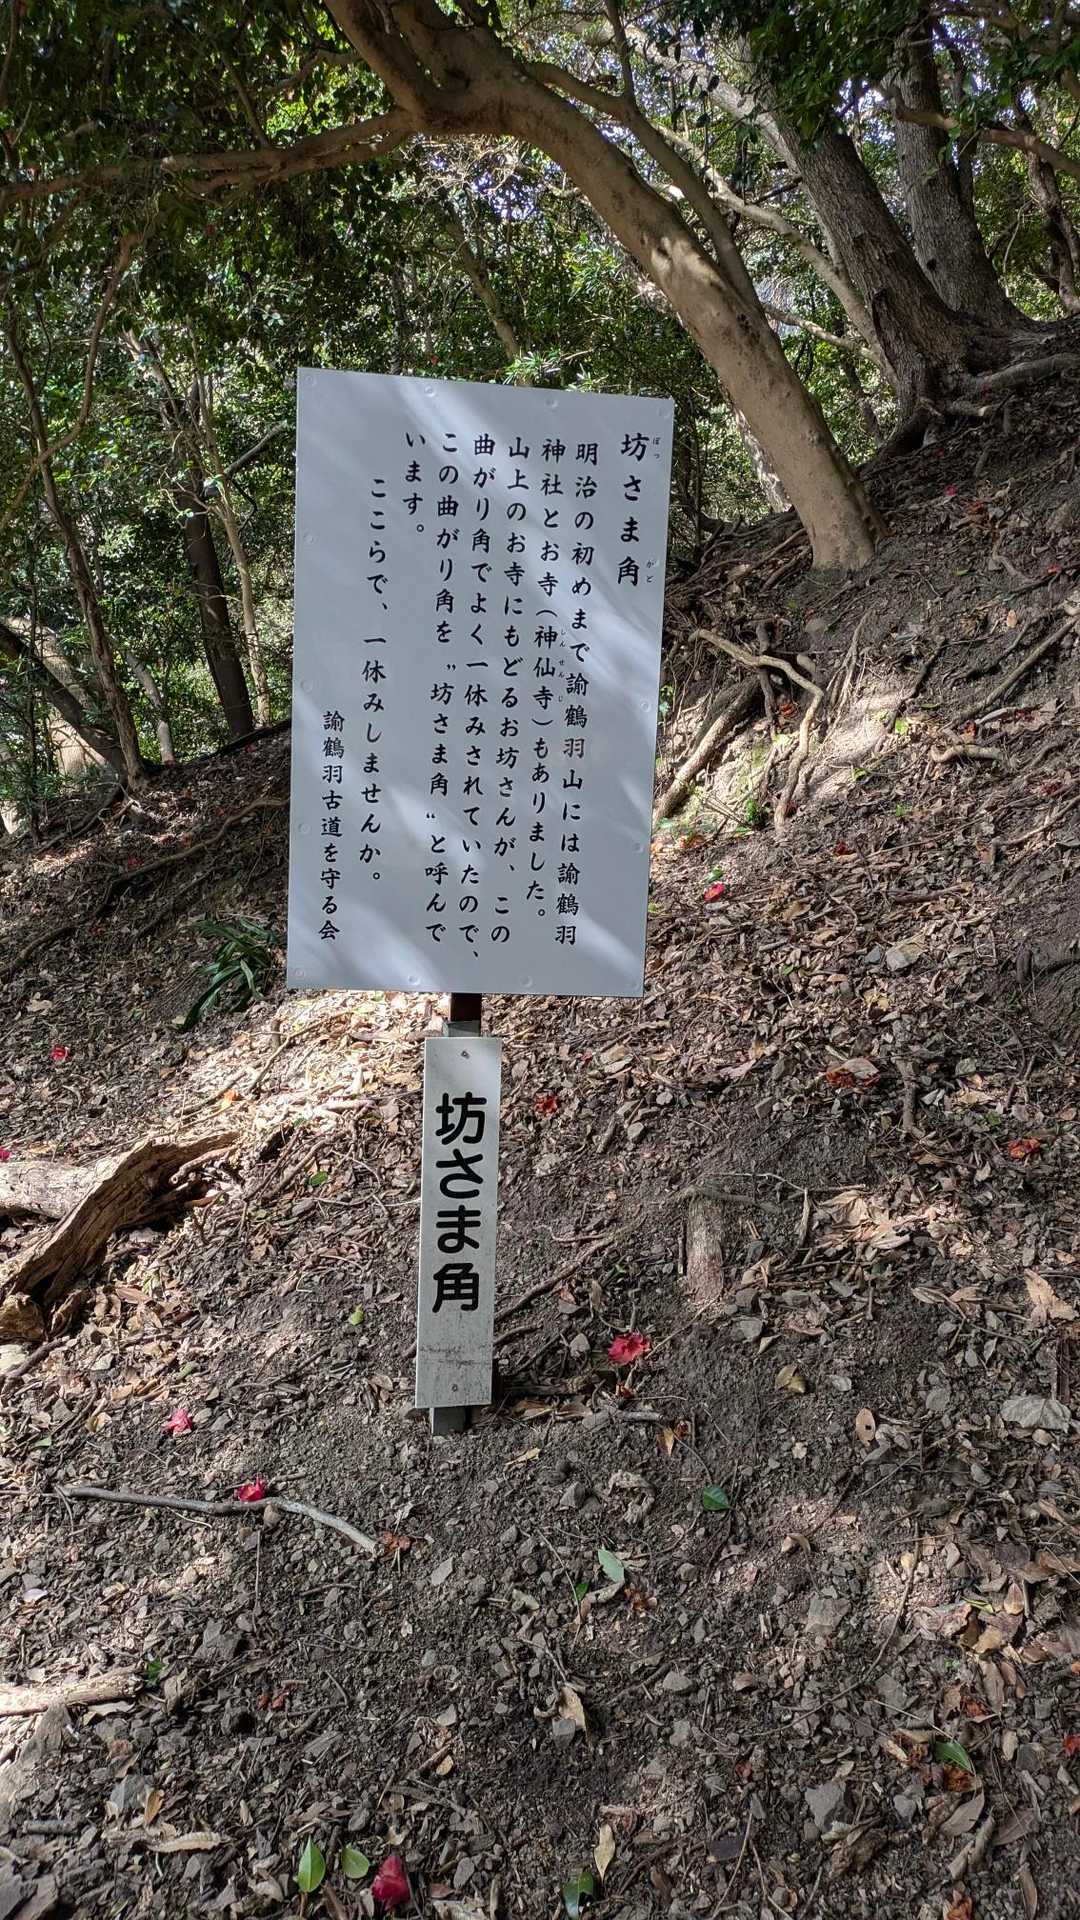 坊さま角
明治の初めまで諭鶴羽山には諭鶴羽
神社とお寺（神仙寺）もありました。
山上のお寺にもどるお坊さんが、この
曲がり角でよく一休みされていたので、
この曲がり角を〝坊さま角〟と呼んで
います。
ここらで、一休みしませんか。
諭鶴羽古道を守る会
坊さま角